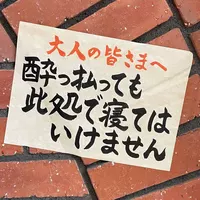 大人の皆さまへ
酔っ払っても
此処で寝ては
いけません